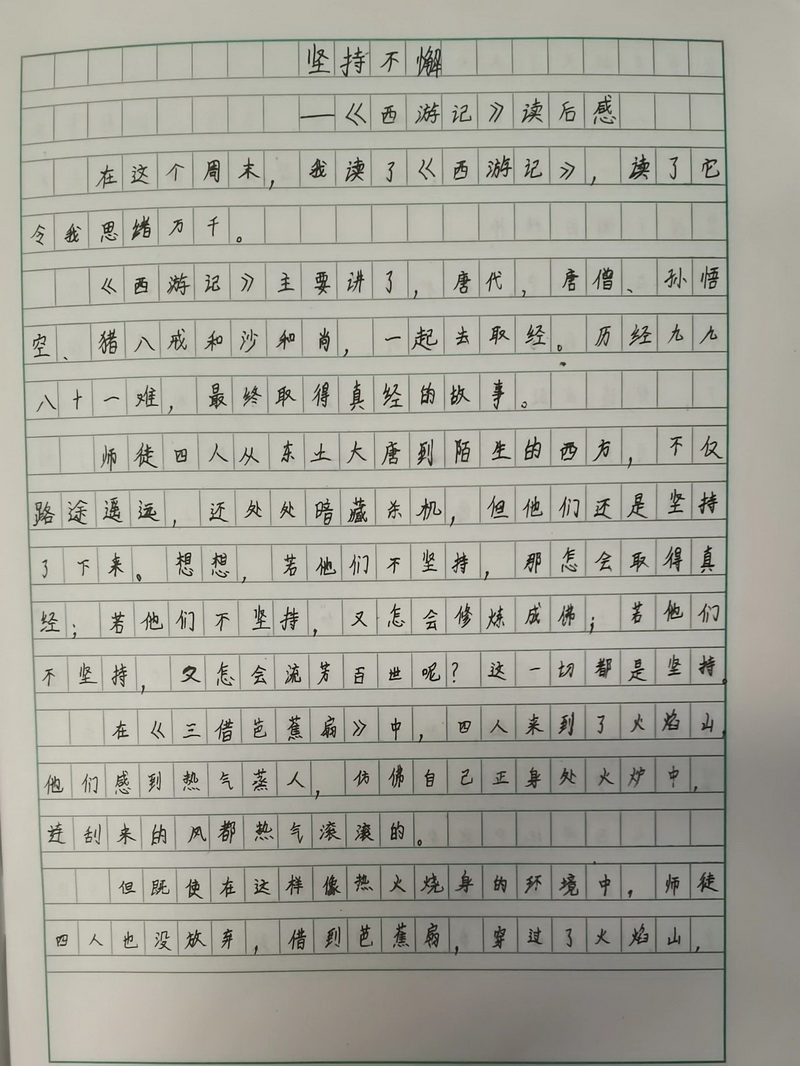 坚持不懈
——《西游记》读后感
在这个周末，我读了《西游记》，读了它
令我思绪万千。
《西游记》主要讲了，唐代，唐僧、孙悟
空、猪八戒和沙和肖，一起去取经。历经九九
八十一难，最终取得真经的故事。
师徒四人从东土大唐到陌生的西方，不仅
路途遥远，还处处暗藏杀机，但他们还是坚持
了下来。想想，若他们不坚持，那怎会取得真
经；若他们不坚持，又怎会修炼成佛；若他们
不坚持，又怎会流芳百世呢？这一切都是坚持。
在《三借芭蕉扇》中，四人来到了火焰山，
他们感到热气蒸人，仿佛自己正身处火炉中，
连刮来的风都热气滚滚的。
但既使在这样像热火烧身的环境中，师徒
四人也没放弃，借到芭蕉扇，穿过了火焰山，